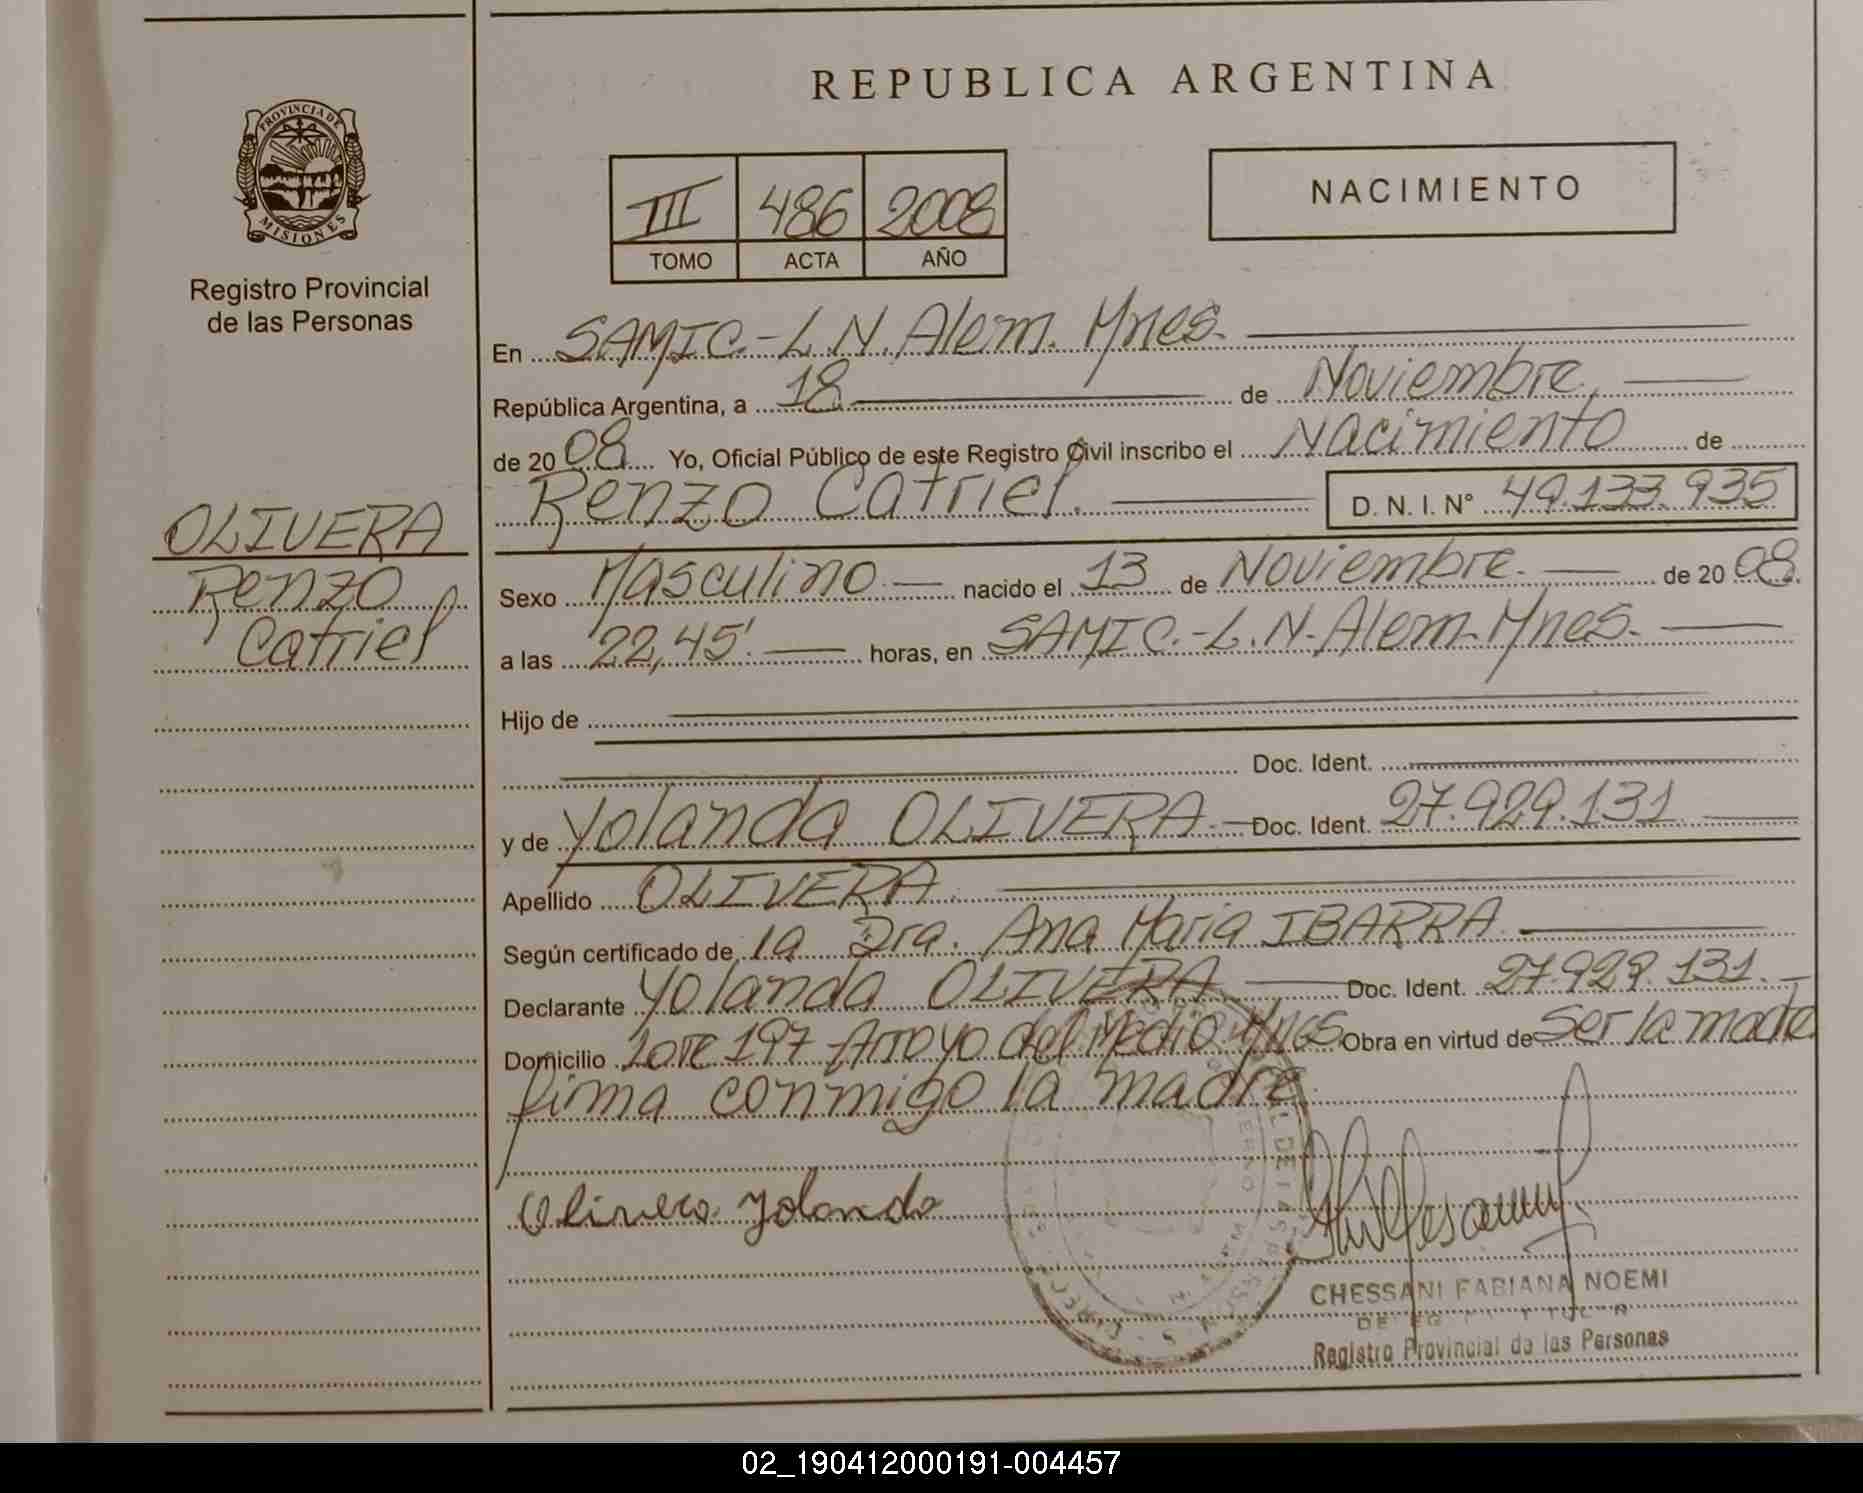 REPUBLICA ARGENTINA
PROVINCIA DE
MISIONES
Registro Provincial
de las Personas
III 486 2008
TOMO ACTA AÑO
NACIMIENTO
En SAMIC.-L.N.Alem. Mnes.
República Argentina, a 18 de Noviembre.
de 2008. Yo, Oficial Público de este Registro Civil inscribo el Nacimiento de
Renzo Catriel. D. N. I. N° 49.133.935
OLIVERA
Renzo
Catriel
Sexo Masculino.- nacido el 13 de Noviembre. de 2008.
a las 22,45'. horas, en SAMIC.-L.N.Alem.Mnes.
Hijo de
Doc. Ident.
y de Yolanda OLIVERA.- Doc. Ident. 27.929.131.
Apellido OLIVERA.
Según certificado de la Dra. Ana Maria IBARRA.
Declarante Yolanda OLIVERA Doc. Ident. 27.929.131.-
Domicilio Lote 197 Arroyo del Medio Mnes. Obra en virtud de Ser la madre
firma conmigo la madre.
Olivera Yolanda
CHESSANI FABIANA NOEMI
Registro Provincial de las Personas
02_190412000191-004457